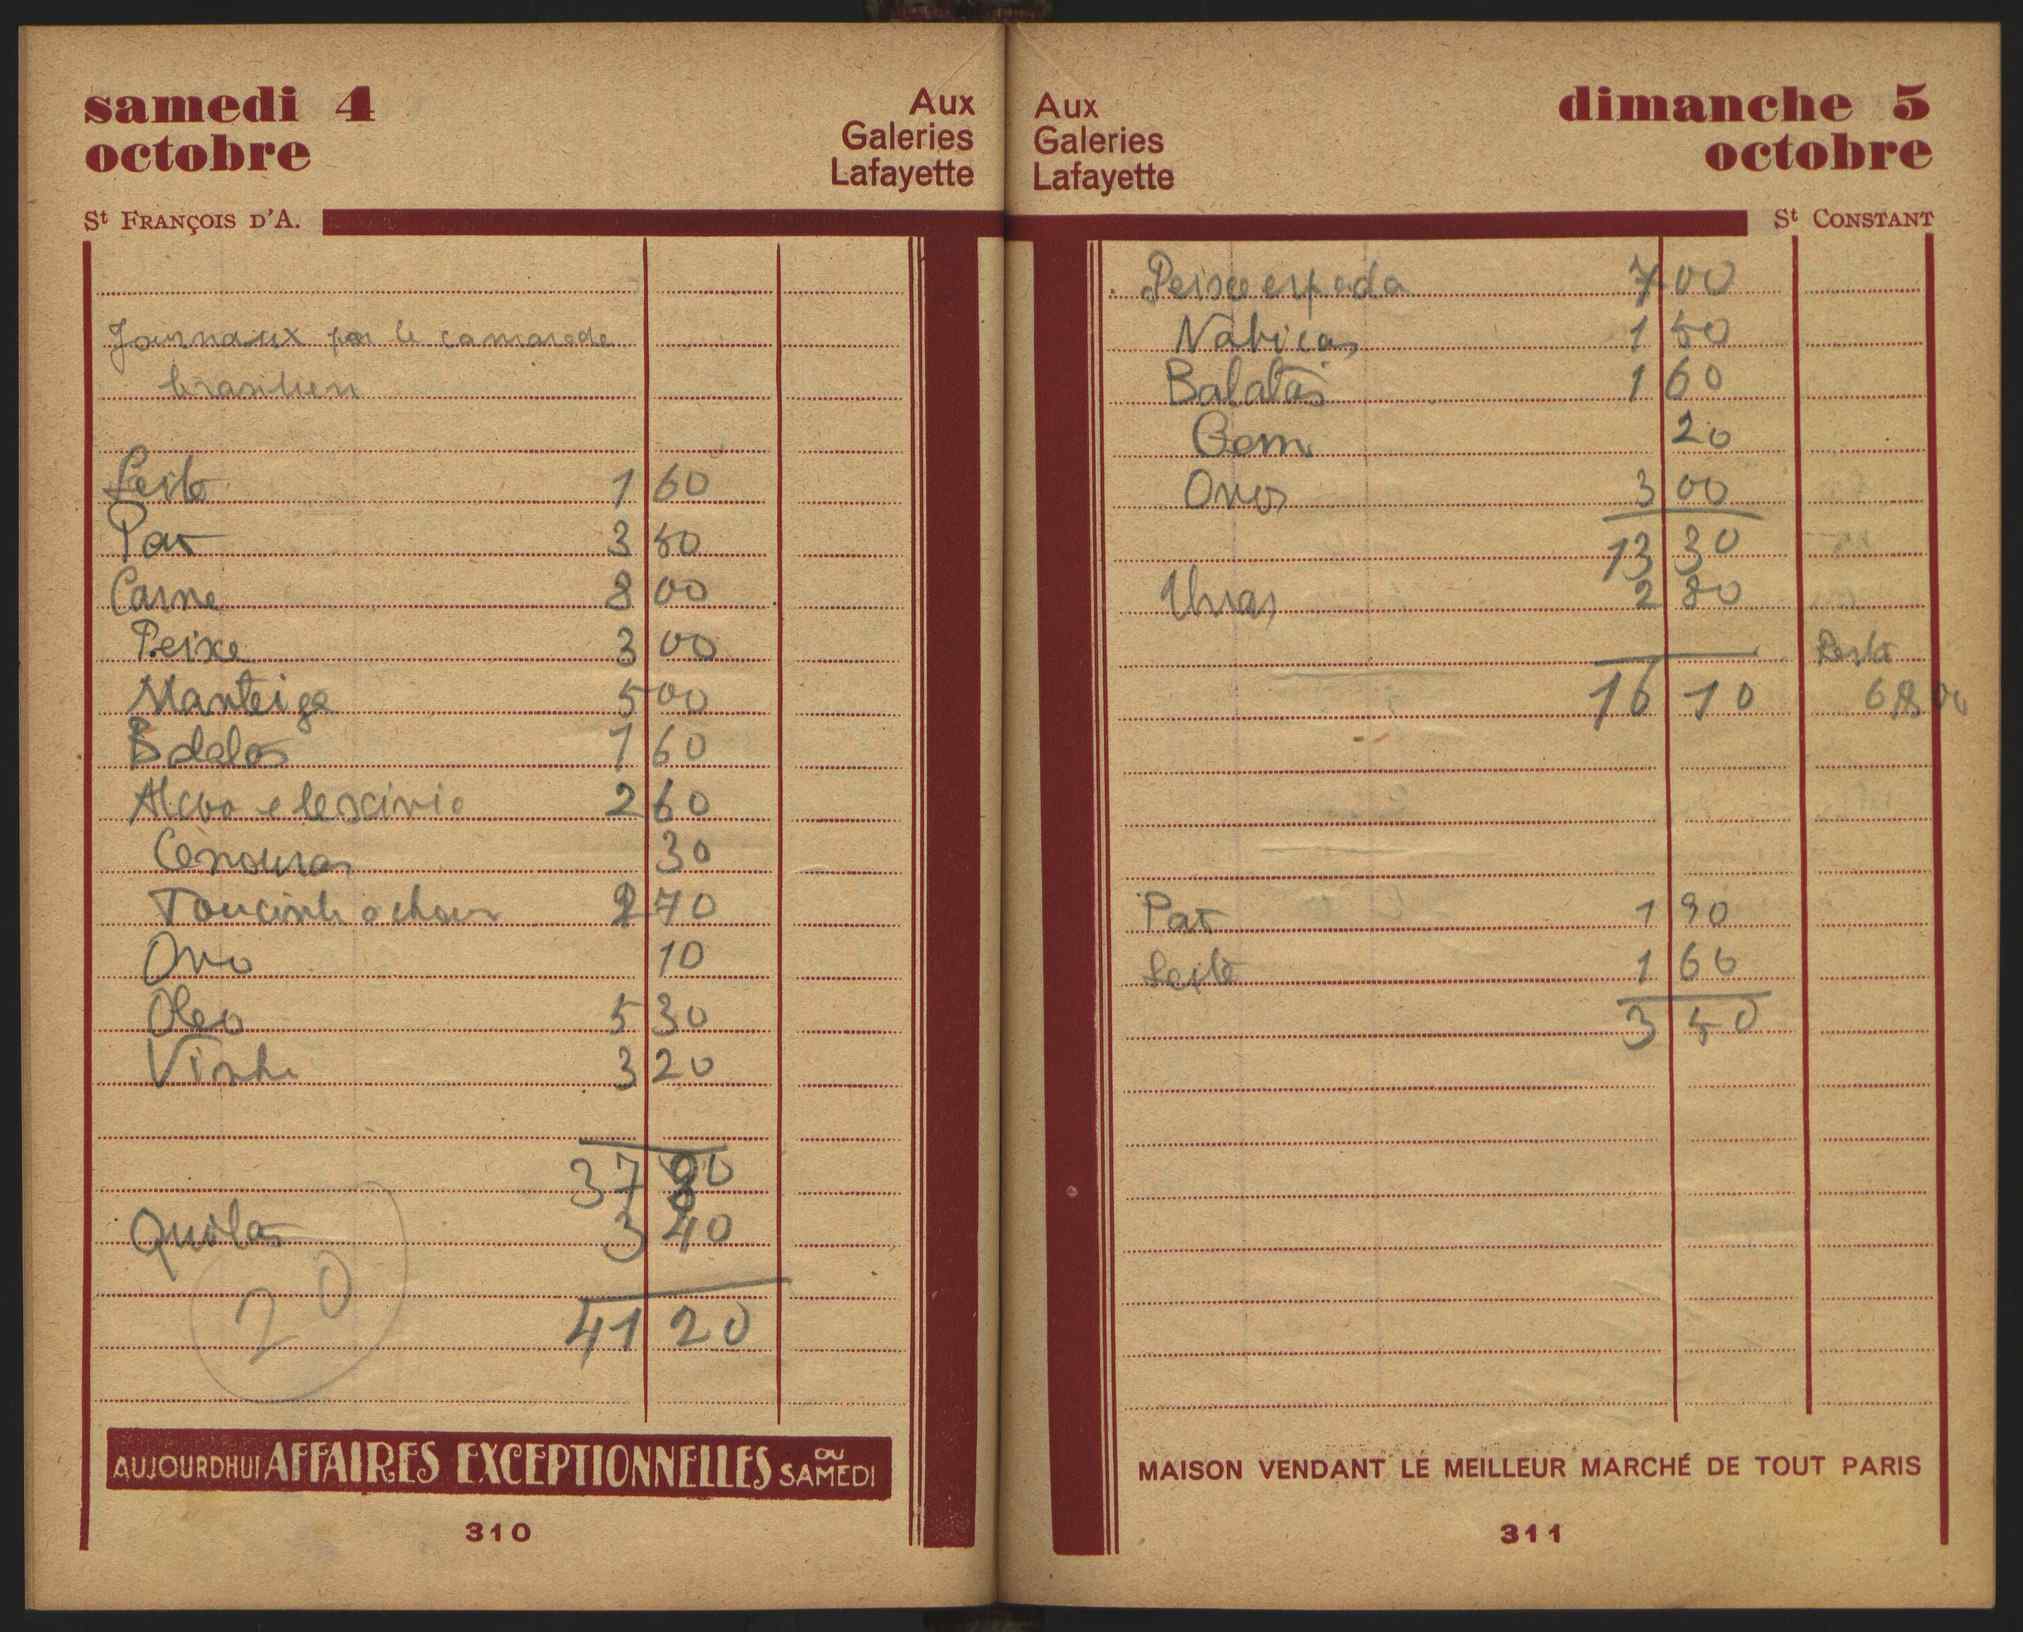 samedi 4
octobre
Aux
Galeries
Lafayette
St FRANÇOIS D'A.
Journaux par le camarade
brasilien
Leite 1 60
Pao 3 80
Carne 8 00
Peixe 3 00
Manteiga 5 00
Batatas 1 60
Alcool e lescivia 2 60
Cenouras 30
Toucinho 2 70
Ovo 10
Oleo 5 30
Vinho 3 20
37 80
3 40
20
41 20
AUJOURDHUI AFFAIRES EXCEPTIONNELLES OU SAMEDI
310
Aux
Galeries
Lafayette
dimanche 5
octobre
St CONSTANT
Peixe espada 7 00
Nabiças 1 50
Batatas 1 60
20
Ovos 3 00
13 30
Uvas 2 80
Resto
16 10
Pao 1 80
Leite 1 60
3 40
MAISON VENDANT LE MEILLEUR MARCHÉ DE TOUT PARIS
311